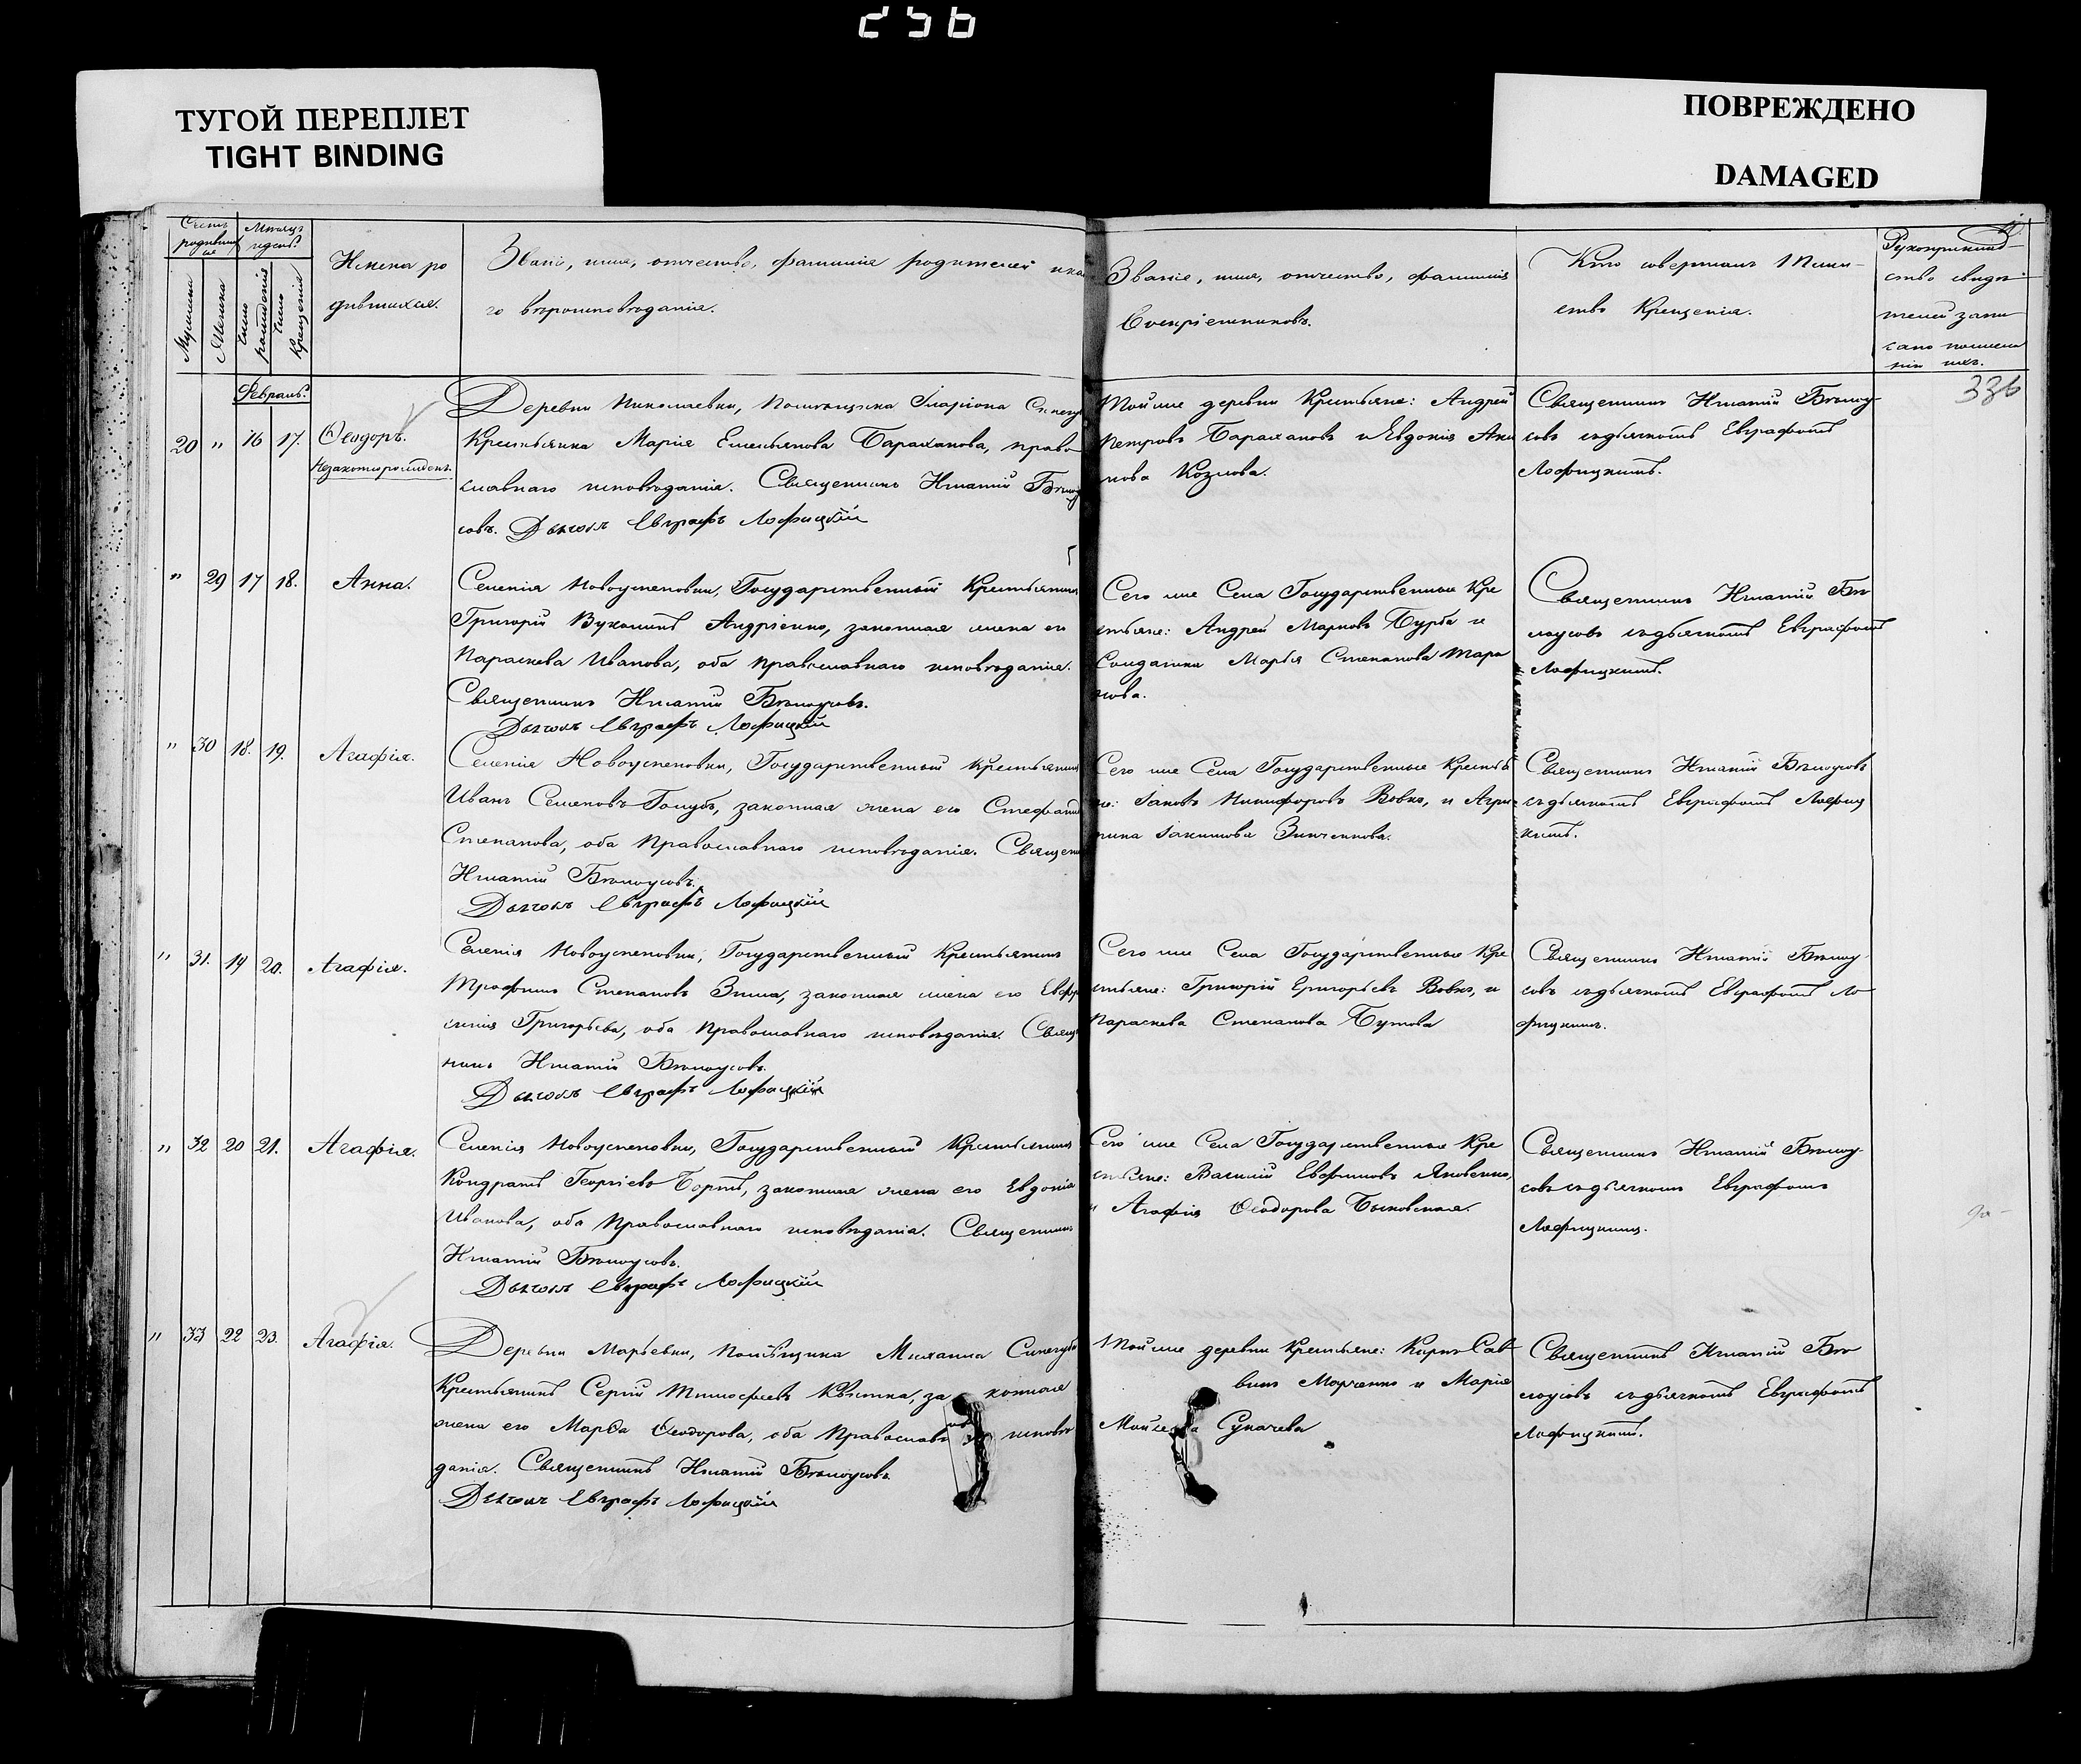 256
ТУГОЙ ПЕРЕПЛЕТ
TIGHT BINDING
ПОВРЕЖДЕНО
DAMAGED
Счетъ родившихся
Мѣсяцъ и день.
Мужеска
Женска
Число рожденія
Число Крещенія
Имена ро
дившихся.
Званіе, имя, отчество, фамилія родителей и како
го вѣроисповѣданія.
Званіе, имя, отчество, фамилія
Воспріемниковъ.
Кто совершалъ Таин-
ство Крещенія.
Рукоприклад-
ство свидѣ
телей запи
336
Февраль.
20 " 16 17. Ѳеодоръ.
Незаконнорожденъ.
Деревни Николаевки, Помѣщика Иларіона
Крестьянка Марія Емельянова Бараханова, право
славнаго исповѣданія. Священникъ Игнатій Бѣлоу
совъ. Дьячокъ Евграфъ Лофицкій
Той же деревни Крестьяне: Андрей
Петровъ Барахановъ и Евдокія
нова Козлова.
Священникъ Игнатій Бѣлоу
совъ съ дьячкомъ Евграфомъ
Лофицкимъ.
" 29 17 18. Анна.
Селенія Новоуспеновки, Государственный Крестьянинъ
Григорій Андріенко, законная жена его
Параскева Иванова, оба православнаго исповѣданія.
Священникъ Игнатій Бѣлоусовъ.
Дьячокъ Евграфъ Лофицкій
Сего же Села Государственные Кре
стьяне: Андрей Марковъ Бурба и
Солдатка Марья Степанова
Священникъ Игнатій Бѣ
лоусовъ съ дьячкомъ Евграфомъ
Лофицкимъ.
" 30 18. 19. Агафія.
Селенія Новоуспеновки, Государственный Крестьянинъ
Иванъ Семеновъ Голубъ, законная жена его
Степанова, оба Православнаго исповѣданія. Священ
Игнатій Бѣлоусовъ.
Дьячокъ Евграфъ Лофицкій
Сего же Села Государственные Крестья
не: Іаковъ Никифоровъ Вовкъ, и Агри
пина Іакимова Зинченкова.
Священникъ Игнатій Бѣлоусовъ
съ дьячкомъ Евграфомъ Лофиц
кимъ.
" 31. 19 20. Агафія.
Селенія Новоуспеновки, Государственный Крестьянинъ
Трофимъ Степановъ Зима, законная жена его Евфро
синія Григорьева, оба Православнаго исповѣданія. Свящ
никъ Игнатій Бѣлоусовъ.
Дьячокъ Евграфъ Лофицкій
Сего же Села Государственные Кре
стьяне: Григорій Григорьевъ Вовкъ, и
Параскева Степанова Бутова
Священникъ Игнатій Бѣлоу-
совъ съ дьячкомъ Евграфомъ Ло
фицкимъ.
" 32 20 21. Агафія.
Селенія Новоуспеновки, Государственный Крестьянинъ
Кондратъ Георгіевъ законная жена его Евдокія
Иванова, оба Православнаго исповѣданія. Священникъ
Игнатій Бѣлоусовъ.
Дьячокъ Евграфъ Лофицкій
Сего же Села Государственные Кре
стьяне: Василій Евфимовъ Яковенко,
и Агафія Ѳеодорова Быковская.
Священникъ Игнатій Бѣлоу-
совъ съ дьячкомъ Евграфомъ
Лофицкимъ.
" 33 22 23. Агафія.
Деревни Марьевки, Помѣщика Михаила
Крестьянинъ Сергій Тимофеевъ Квитка, законная
жена его Марѳа Ѳеодорова, оба Православнаго исповѣ
данія. Священникъ Игнатій Бѣлоусовъ.
Дьячокъ Евграфъ Лофицкій
Той же деревни Крестьяне: Карпъ Сав
винъ Марченко и Марія
Моисеева Сукачева
Священникъ Игнатій Бѣ
лоусовъ съ дьячкомъ Евграфомъ
Лофицкимъ.